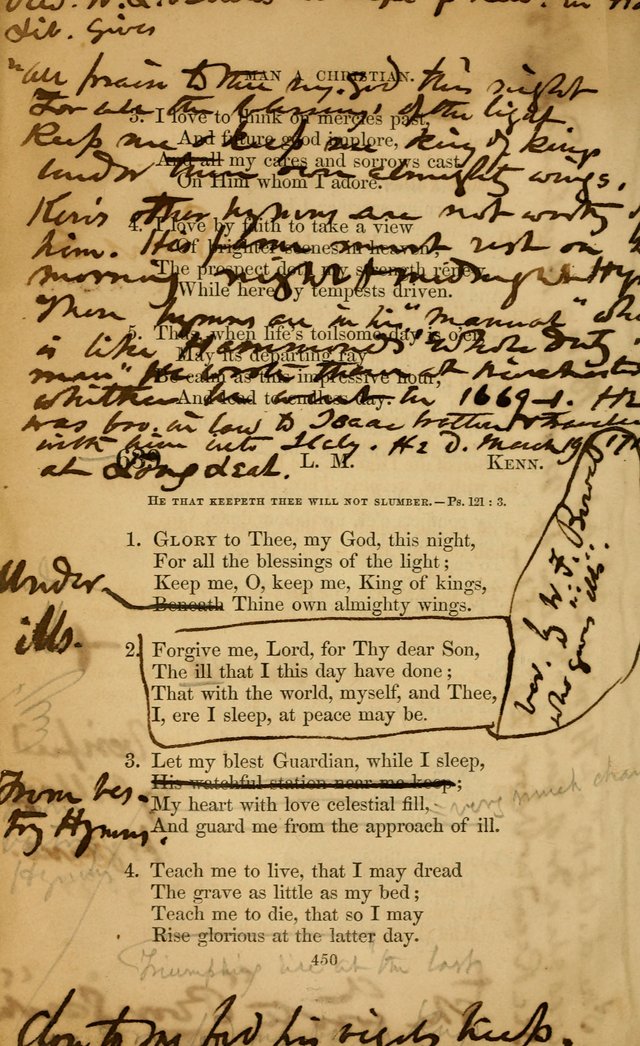 Lib. Gives
"All praise to thee my God this night
MAN A CHRISTIAN.
For all the blessings of the light
3. I love to think on mercies past,
Keep me keep me king of kings
And future good implore,
And all my cares and sorrows cast
under thine own almighty wings.
On Him whom I adore.
Ken's other hymns are not worthy
4. I love by faith to take a view
him. His fame must rest on
Of brighter scenes in heaven;
morning night & midnight
The prospect doth my strength renew,
While here by tempests driven.
These hymns are in his "Manual"
5. Thus, when life's toilsome day is o'er,
is like Hammond's "Whole Duty
May its departing ray
man" He wrote them at Winchester
Be calm as this impressive hour,
whither he in 1669
And lead to endless day.
was bro. in law to Isaac Walton &
with him into Italy. He D. March 19
at Long Leat.
639 L. M. KENN.
HE THAT KEEPETH THEE WILL NOT SLUMBER.—Ps. 121 : 3.
1. GLORY to Thee, my God, this night,
For all the blessings of the light;
Keep me, O, keep me, King of kings,
Under
Beneath Thine own almighty wings.
ills.
2. Forgive me, Lord, for Thy dear Son,
The ill that I this day have done;
That with the world, myself, and Thee,
I, ere I sleep, at peace may be.
ver. by W. F.
who gives ills.
3. Let my blest Guardian, while I sleep,
His watchful station near me keep;
My heart with love celestial fill,
very much
And guard me from the approach of ill.
From
Hymns.
Hymns
4. Teach me to live, that I may dread
The grave as little as my bed;
Teach me to die, that so I may
Rise glorious at the latter day.
450
Triumphing rise at the last
Close to my bed his vigils keep.